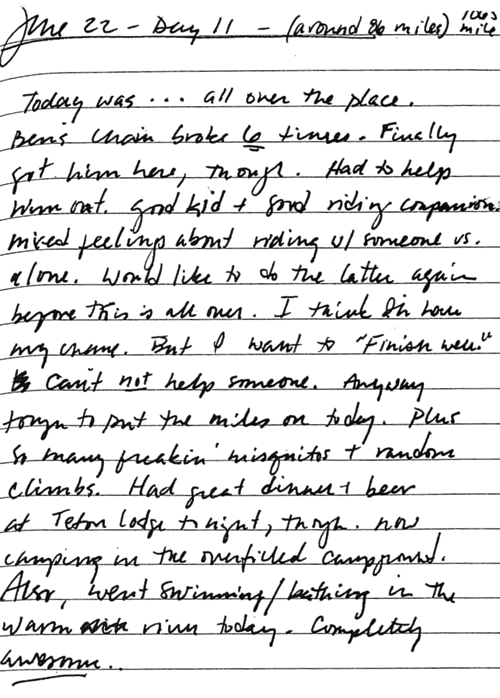 June 22 - Day 11 - (around 86 miles) 1063 mile
Today was ... all over the place.
Ben's chain broke 6 times. Finally
got him here, though. Had to help
him out. Good kid + good riding companion.
mixed feelings about riding w/ someone vs.
alone. Would like to do the latter again
before this is all over. I think I'll have
my chance. But I want to "Finish well."
Can't not help someone. Anyway
tough to put the miles on today. Plus
so many freakin' misquitos + random
climbs. Had great dinner + beer
at Teton Lodge tonight, though. now
camping in the overfilled campground.
Also, went swimming/bathing in the
warm river today. Completely
awesome..